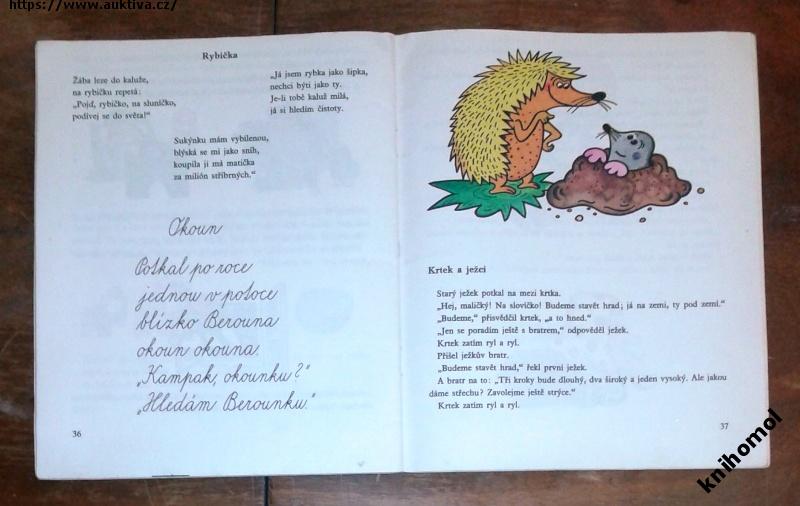 https://www.auktiva.cz/
Rybička
Žába leze do kaluže,
na rybičku repetá:
„Pojď, rybičko, na sluníčko,
podívej se do světa!“
„Já jsem rybka jako šipka,
nechci býti jako ty.
Je-li tobě kaluž milá,
já si hledím čistoty.
Sukýnku mám vybílenou,
blýská se mi jako sníh,
koupila ji má matička
za milión stříbrných.“
Okoun
Potkal po roce
jednou v potoce
blízko Berouna
okoun okouna.
„Kampak, okounku?“
„Hledám Berounku.“
36
Krtek a ježci
Starý ježek potkal na mezi krtka.
„Hej, maličký! Na slovíčko! Budeme stavět hrad; já na zemi, ty pod zemí.“
„Budeme,“ přisvědčil krtek, „a to hned.“
„Jen se poradím ještě s bratrem,“ odpověděl ježek.
Krtek zatím ryl a ryl.
Přišel ježkův bratr.
„Budeme stavět hrad,“ řekl první ježek.
A bratr na to: „Tři kroky bude dlouhý, dva široký a jeden vysoký. Ale jakou
dáme střechu? Zavolejme ještě strýce.“
Krtek zatím ryl a ryl.
37
knihomol